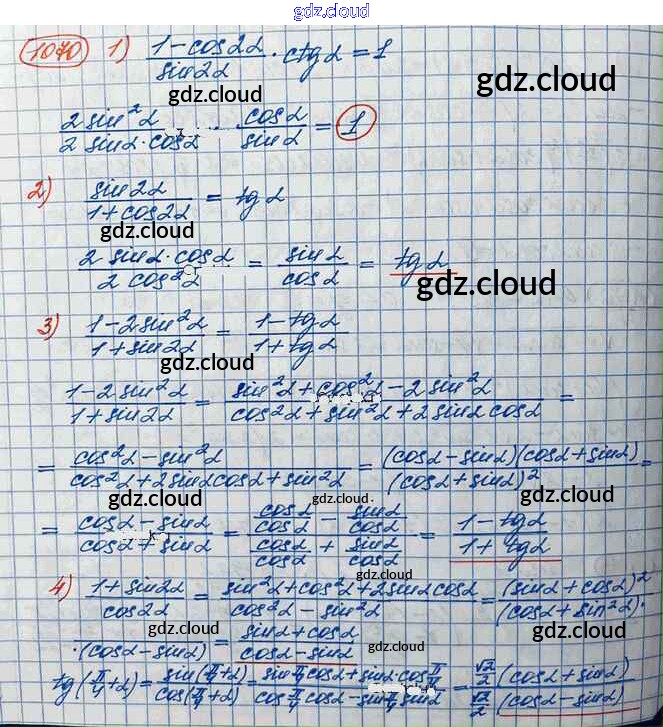 gdz.cloud
1070 1) (1-cos2α)/(sin2α) · ctgα = 1
gdz.cloud
gdz.cloud
(2 sin²α)/(2 sinα·cosα) · (cosα)/(sinα) = 1
2) (sin2α)/(1+cos2α) = tgα
gdz.cloud
(2 sinα·cosα)/(2 cos²α) = (sinα)/(cosα) = tgα
gdz.cloud
3) (1-2sin²α)/(1+sin2α) = (1-tgα)/(1+tgα)
gdz.cloud
(1-2sin²α)/(1+sin2α) = (sin²α+cos²α-2sin²α)/(cos²α+sin²α+2sinαcosα) =
= (cos²α-sin²α)/(cos²α+2sinαcosα+sin²α) = ((cosα-sinα)(cosα+sinα))/((cosα+sinα)²) =
gdz.cloud
gdz.cloud
gdz.cloud
= (cosα-sinα)/(cosα+sinα) = (cosα/cosα - sinα/cosα)/(cosα/cosα + sinα/cosα) = (1-tgα)/(1+tgα)
gdz.cloud
4) (1+sin2α)/(cos2α) = (sin²α+cos²α+2sinαcosα)/(cos²α-sin²α) = (sinα+cosα)²/(cosα+sin²α)·
·(cosα-sinα) = (sinα+cosα)/(cosα-sinα)
gdz.cloud
gdz.cloud
gdz.cloud
tg(π/4+α) = (sin(π/4+α))/(cos(π/4+α)) = (sinπ/4cosα+sinα·cosπ/4)/(cosπ/4cosα-sinπ/4sinα) = (√2/2(cosα+sinα))/(√2/2(cosα-sinα))